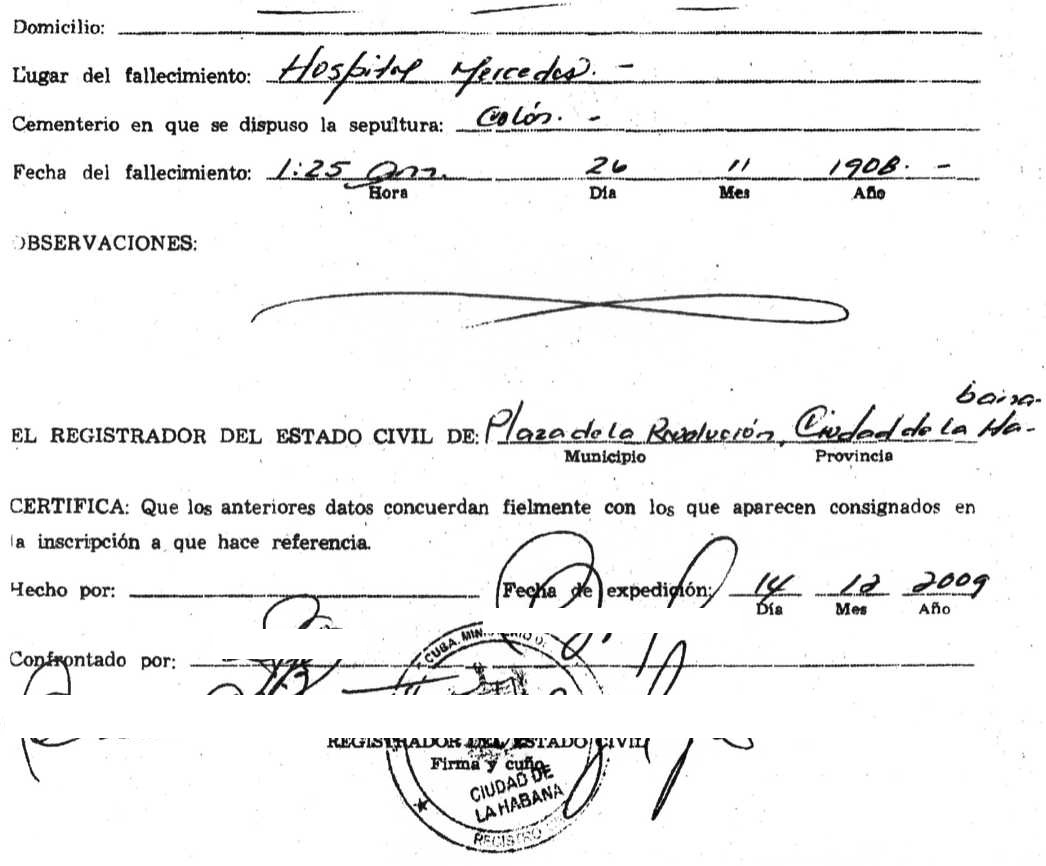 Domicilio:
Lugar del fallecimiento: Hospital Mercedes. -
Cementerio en que se dispuso la sepultura: Colón. -
Fecha del fallecimiento: 1:25 am. 26 11 1908. -
Hora Día Mes Año
OBSERVACIONES:
EL REGISTRADOR DEL ESTADO CIVIL DE: Plaza de la Revolución, Ciudad de la Ha-
bana-
Municipio Provincia
CERTIFICA: Que los anteriores datos concuerdan fielmente con los que aparecen consignados en
la inscripción a que hace referencia.
Hecho por: Fecha de expedición: 14 12 2009
Día Mes Año
Confrontado por:
CUBA. MINISTERIO D
REGISTRADOR DEL ESTADO CIVIL
Firma y cuño
CIUDAD DE
LA HABANA
REGISTRO